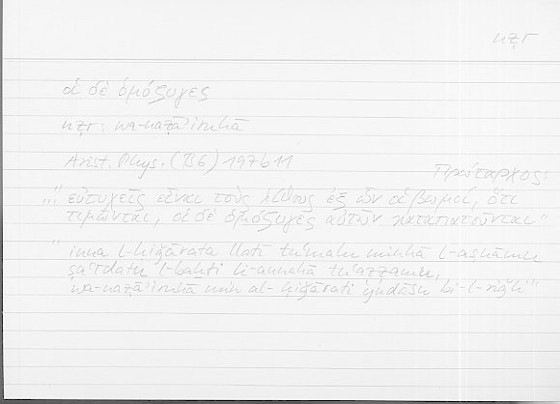 nẓr
αἱ δὲ ὁμόζυγες
nẓr: wa-naẓāʾiruhā
Arist. Phys. (B6) 197b11
Πρώταρχος:
„ εὐτυχεῖς εἶναι τοὺς λίθους ἐξ ὧν οἱ βωμοί, ὅτι
τιμῶνται, οἱ δὲ ὁμόζυγες αὐτῶν καταπατοῦνται "
" inna l-ḥiǧārata llatī tuʿmalu minhā l-aṣnāmu
saʿīdatu l-baḫti li-annahā tuʿaẓẓamu,
wa-naẓāʾiruhā min al-ḥiǧārati yudāsu bi-l-riǧli "